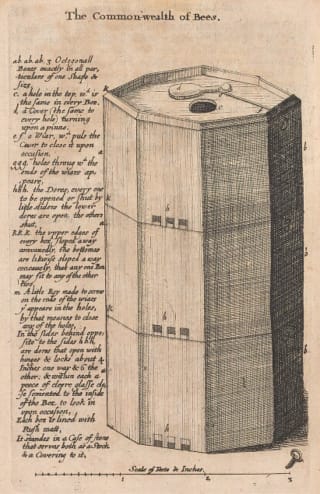 The Common-wealth of Bees.
ab ab ab 3 Octogonall
Boxes exactly in all par,
ticulars of one Shape &
Size,
c. a hole in the top, wch is
the same in every Box.
d. a Cover (the same to
every hole) turning
upon a pinne.
e. f. a Wiar, wch puls the
Cover to close it upon
occasion.
g.g.g. holes throug wch the
ends of the wiare ap,
peare,
h.h.h. the Dores, every one
to be opened or shut by
little sliders the lower
dores are open, the others
shut,
k.k.k. the upper edges of
every box, sloped a way
outwardly, the bottomes
are likewise sloped a way
concavely, that any one Box
may fit to any of the other
two,
m. A little Key made to screw
on the ends of the wiars
yt appeare in the holes,
by that meanes to close
any of the holes,
In the sides behind oppo,
site to the sides h.h.h,
are dores that open with
hinges & locks about 4
Inches one way & 6 the
other: & within each a
peece of cleere glasse is
so semented to the inside
of the Box, to look in
upon occasion,
Each box is lined with
Rush matt,
It standes in a Case of stone
that serves both as a Stock
& a Covering to it,
k
k
k
a
a
a
b
b
b
h
h
h
c
d
m
Scale of Foote & Inches.
1
2
3